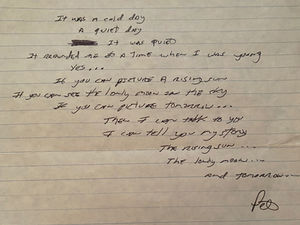 It was a cold day
A quiet day
It was quiet
It reminded me of a time when I was young
Yes...
If you can picture a rising sun
If you can see the lonely moon in the sky
If you can picture tomorrow...
Then I can talk to you
I can tell you my story
The rising sun...
The lonely moon...
And tomorrow...